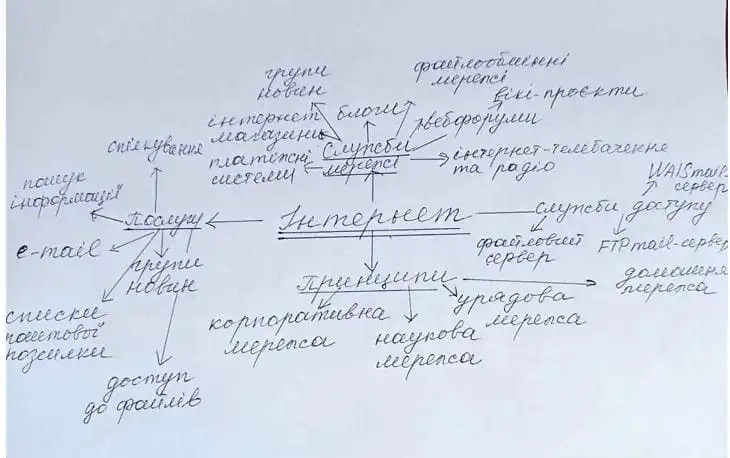 файлообмінні
мережі
групи
новин
вікі-проєкти
блоги
інтернет
магазини
вебфоруми
спілкування
Служби
мережі
платежні
системи
інтернет-телебачення
та радіо
WAISmail-
сервер
пошук
інформації
Послуги
Інтернет
служби доступу
e-mail
групи
новин
файловий
сервер
FTPmail-сервер
Принципи
домашня
мережа
списки
поштової
розсилки
корпоративна
мережа
наукова
мережа
урядова
мережа
доступ
до файлів